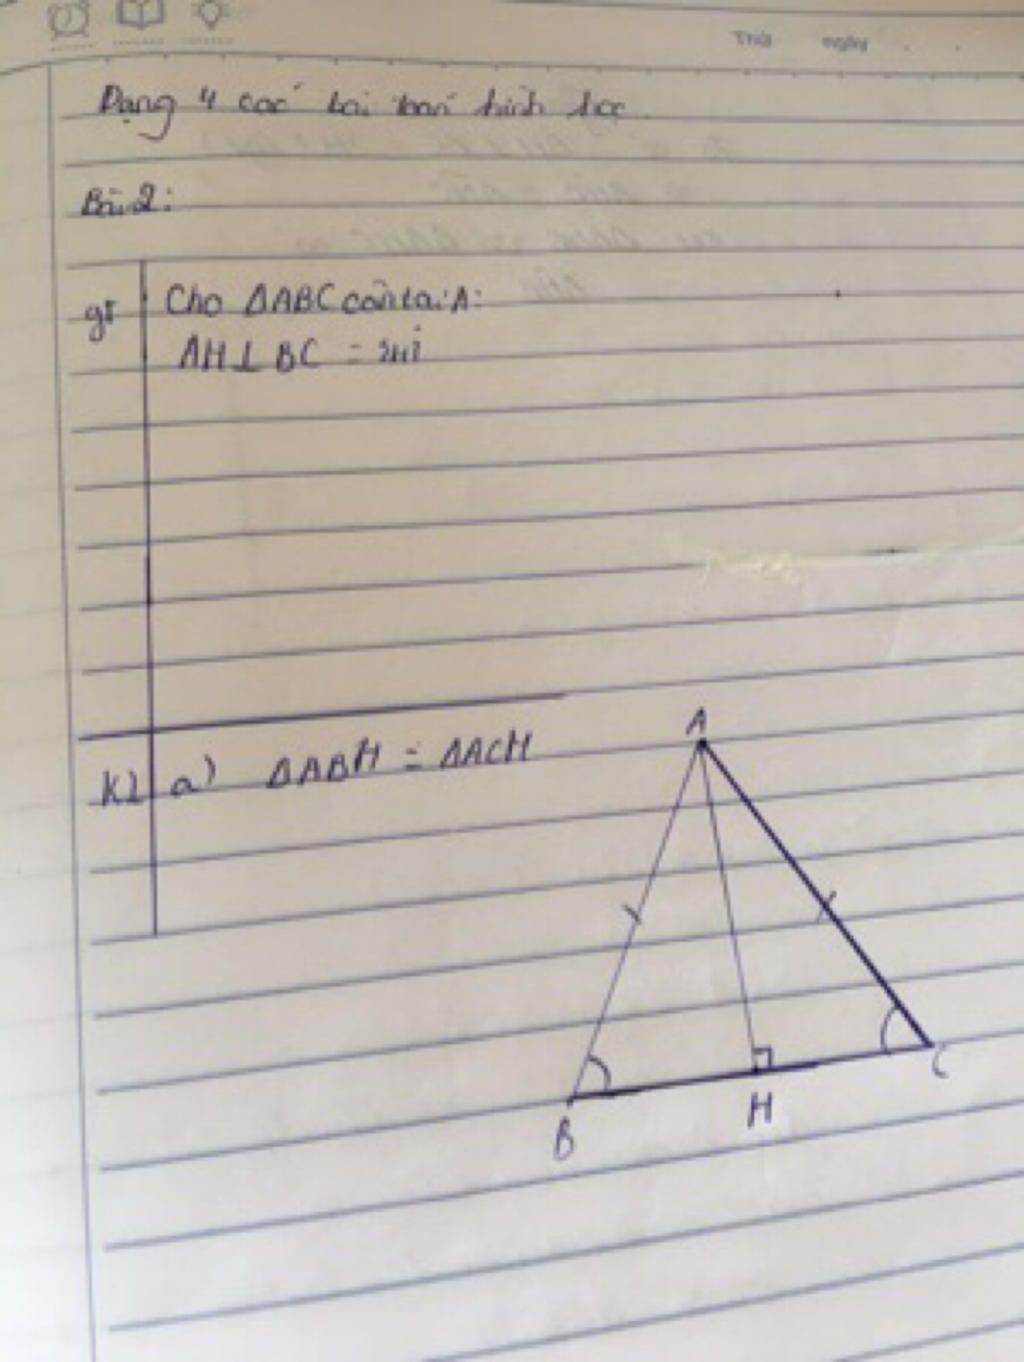 Thứ ngày
Dạng 4 các bài toán hình học.
Bài 2:
gt
Cho ΔABC cân tại A:
AH⊥ BC =
kl a) ΔABH = ΔACH
A
B
H
C